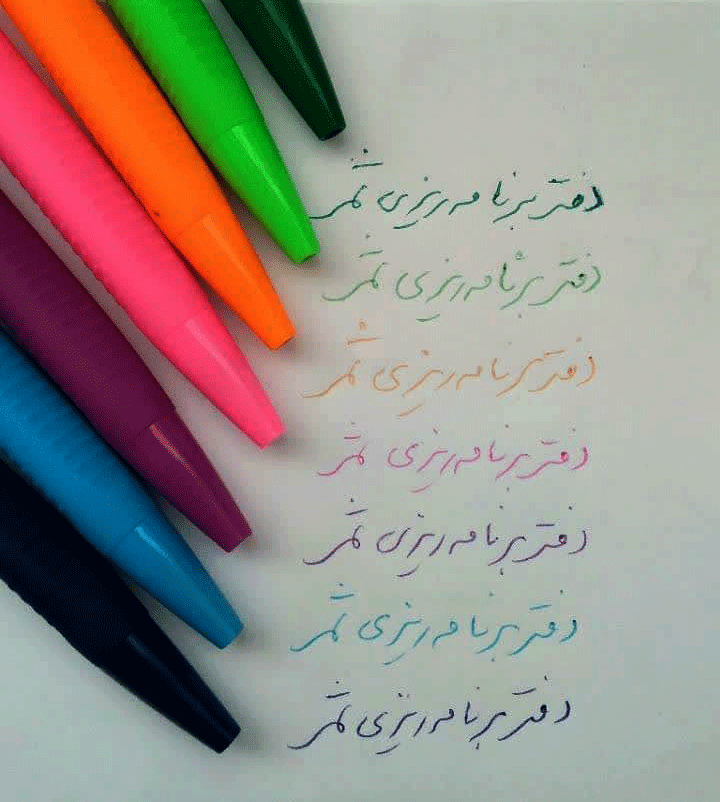 دفتر برنامه ریزی ثمر
دفتر برنامه ریزی ثمر
دفتر برنامه ریزی ثمر
دفتر برنامه ریزی ثمر
دفتر برنامه ریزی ثمر
دفتر برنامه ریزی ثمر
دفتر برنامه ریزی ثمر